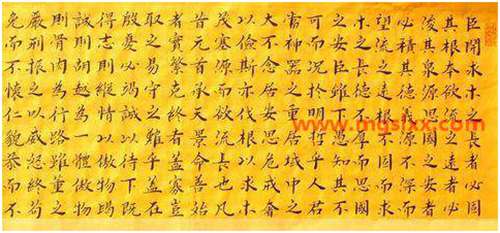 臣聞求木之長者必固
其根本欲流之遠者必
浚其泉源思國之安者
必積其德義源不深而
望流之遠根不固而求
木之長德不厚而思國
之安臣雖下愚知其不
可而況於明哲乎人君
當神器之重居域中之
大不念居安思危戒奢
以儉斯亦伐根以求木
茂塞源而欲流長也凡
昔元首承天景命善始
者實繁克終者蓋寡豈
取之易守之難乎蓋在
殷憂必竭誠以待下既
得志則縱情以傲物竭
誠則胡越為一體傲物
則骨肉為行路雖董之
嚴刑振之以威怒終苟
免而不懷仁貌恭而不
www.mgslxx.com